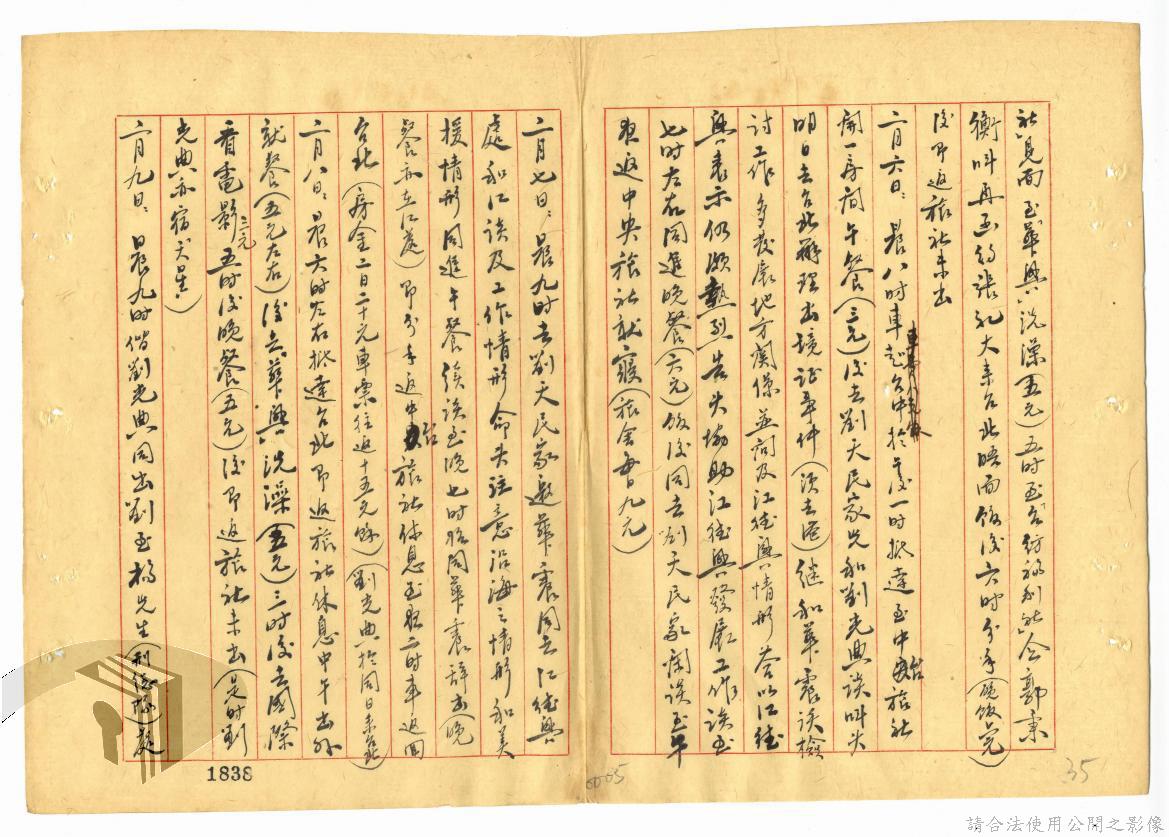 社見面至華興洗澡(五元)五时至台紡福利社会郭秉
衡叫再函約張礼大来台北晤面飯後六时分手(飯飯完)
後即返旅社未出
二月六日:晨八时車赴台中於後一时抵達至中台旅社
開一房間午餐(三元)後去劉天民家先和劉光典談叫失
明日去台北辦理出境证事件(須去港)继和華震談檢
討工作多發展地方関係並詢及江德興情形答以江德
興表示仍頗熱烈告失協助江德興發展工作談至
七时左右同進晚餐(六元)飯後同去刘天民家閑談至午
夜返中央旅社就寢(旅舍每日九元)
二月七日:晨九时去劉天民家邀華震同去江德興
處和江談及工作情形命失注意沿海之情形和美
援情形同進午餐後談至晚七时始同華震辞出(晚
餐亦在江處)即分手返中台旅社休息至夜二时車返回
台北(房金二日二十元車票往返十五元餘)(劉光典於同日来台北)
二月八日:晨六时左右抵達台北即返旅社休息中午出外
就餐(五元左右)後去華興洗澡(五元)三时後去國際
看電影三元五时後晚餐(五元)後即返旅社未出(是时劉
光典亦宿天星)
二月九日:晨九时偕劉光典同出劉至楊先生(利德隆)處
1838
0005
35
請合法使用公開之影像